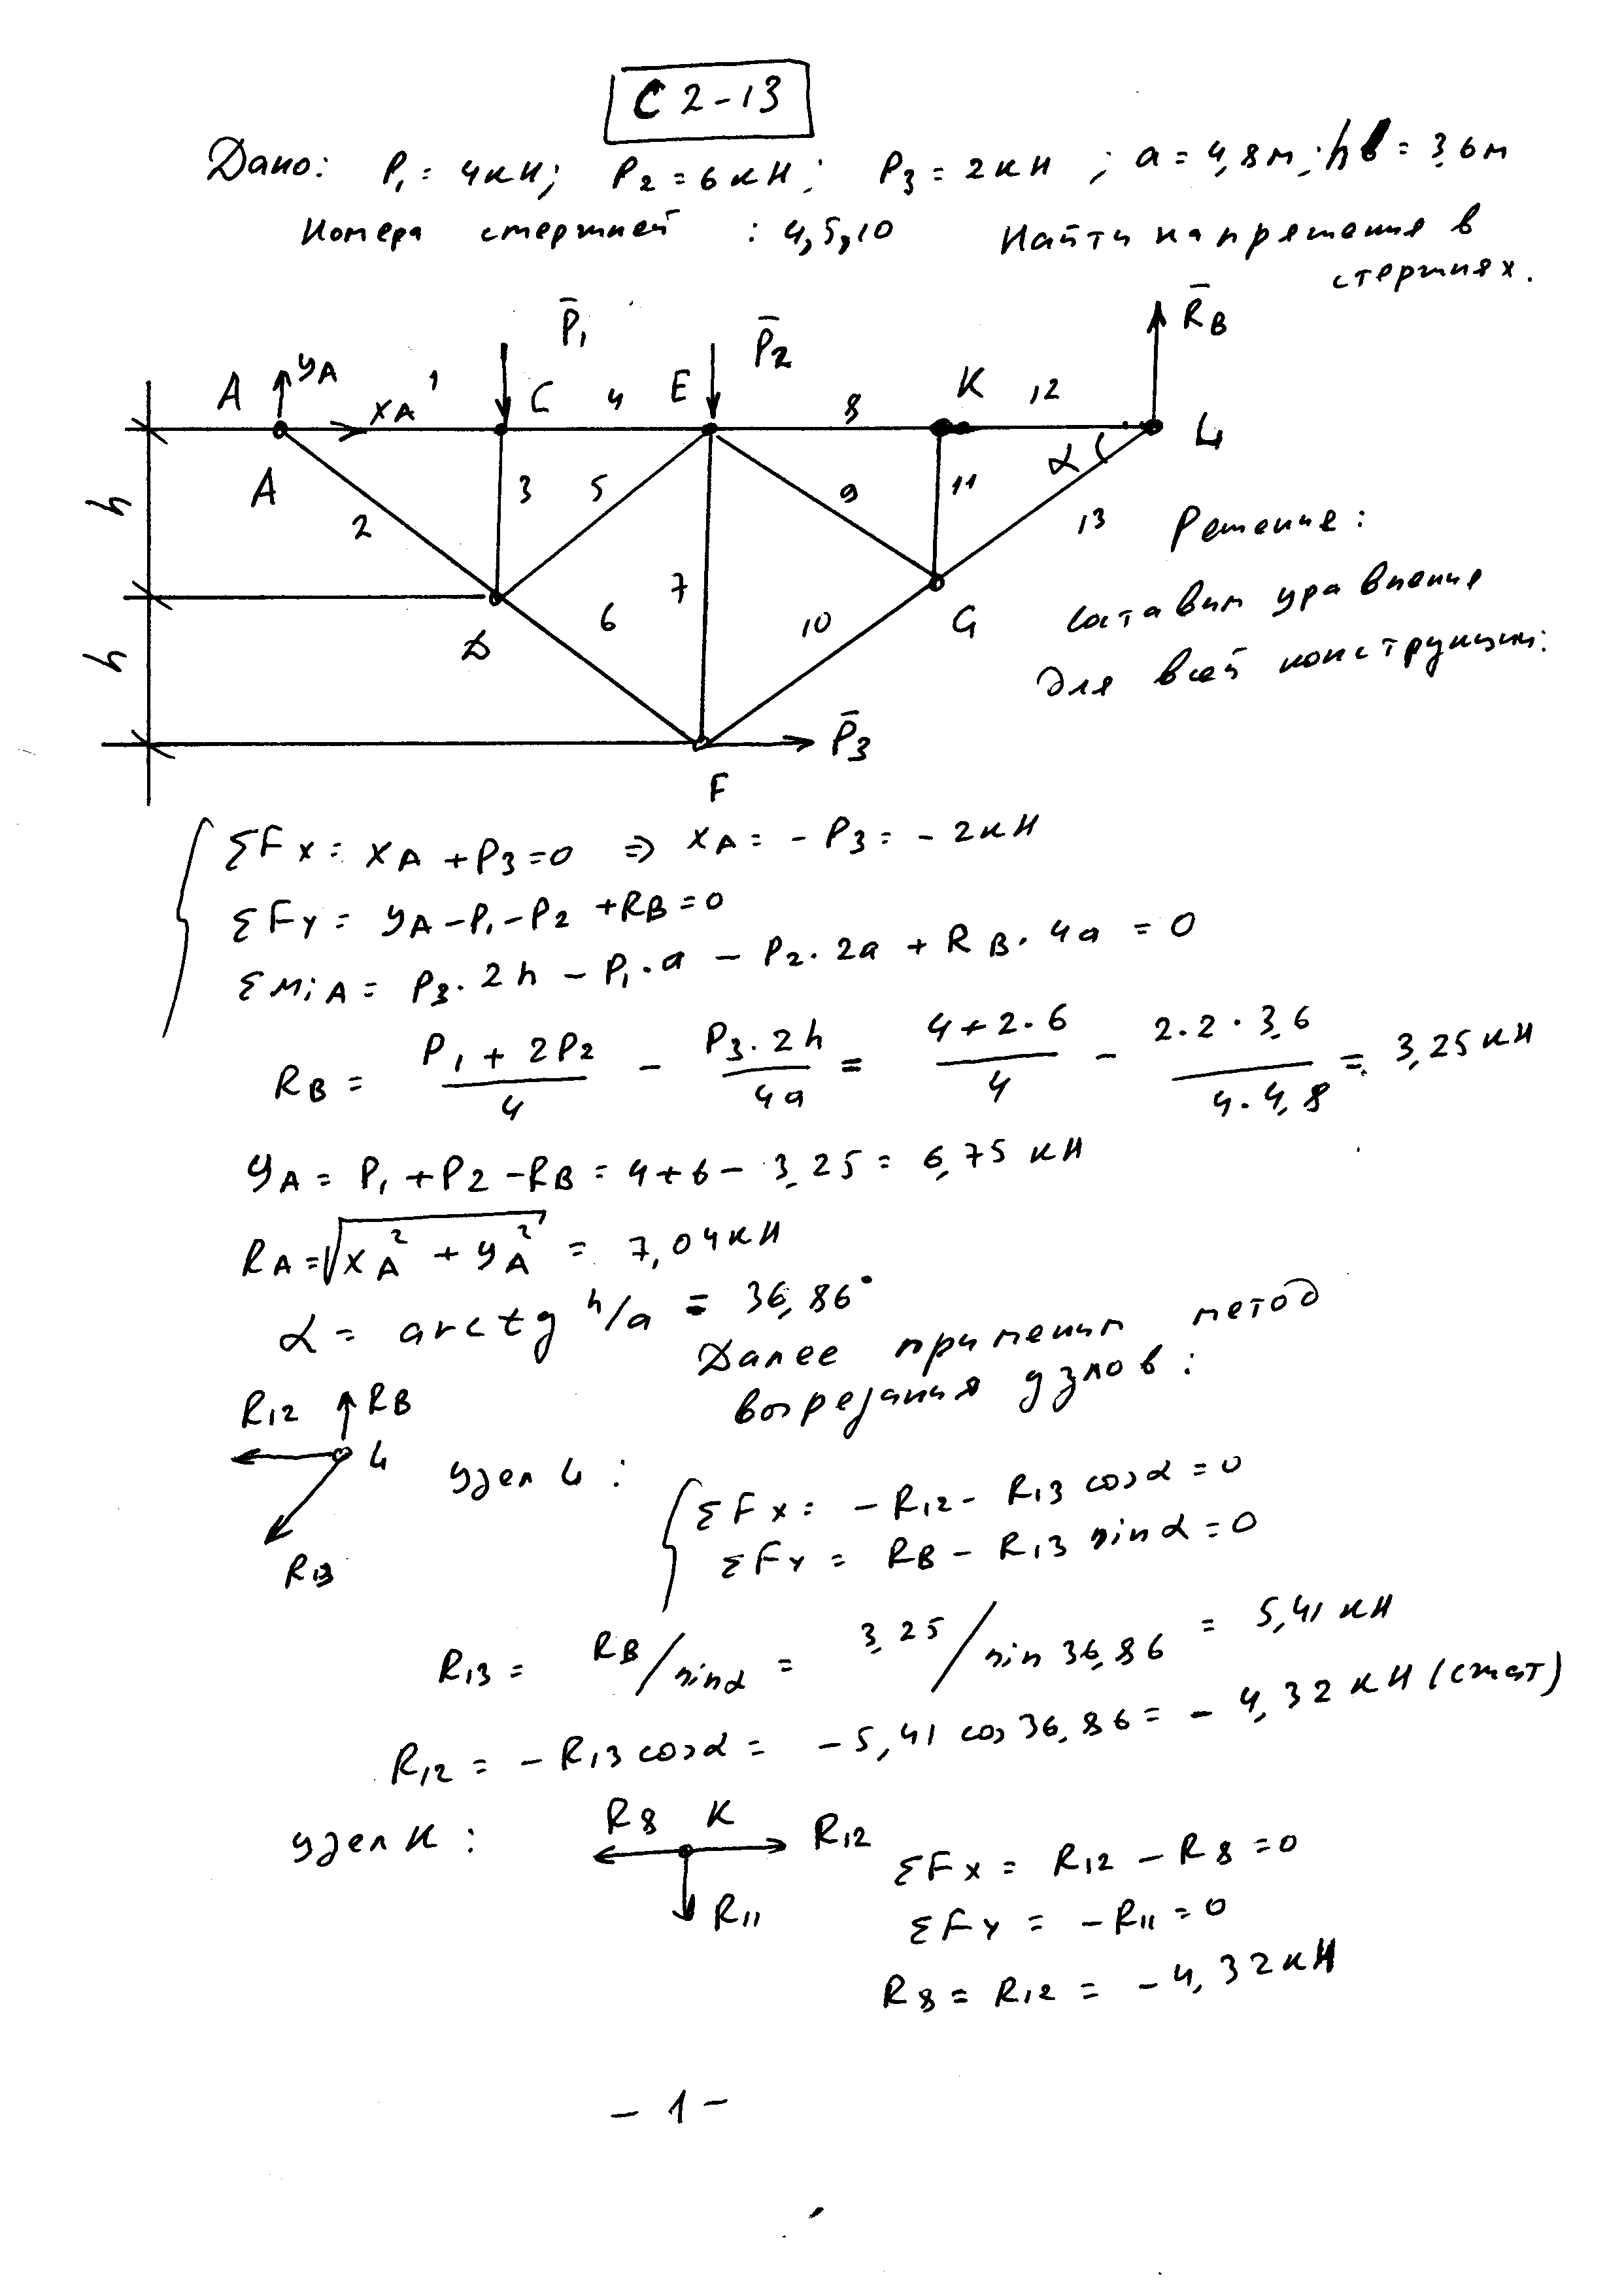 С 2-13
Дано: P₁ = 4кН; P₂ = 6кН; P₃ = 2кН; a = 4,8м; h = 3,6м
Номера стержней : 4,5,10 Найти напряжения в
стержнях.
P̄₁ P̄₂ R̄B
A yA xA 1 C 4 E 8 K 12 L
A 2 3 5 9 11 α 13
h
h
D 6 7 10 G
F P̄₃
Решение:
составим уравнения
для всей конструкции:
ΣFx = xA + P₃ = 0 ⇒ xA = - P₃ = - 2кН
ΣFy = yA - P₁ - P₂ + RB = 0
ΣMiA = P₃·2h - P₁·a - P₂·2a + RB·4a = 0
RB = (P₁ + 2P₂)/4 - (P₃·2h)/4a = (4+2·6)/4 - (2·2·3,6)/(4·4,8) = 3,25кН
yA = P₁ + P₂ - RB = 4+6- 3,25 = 6,75 кН
RA = √(xA² + yA²) = 7,04кН
α = arctg h/a = 36,86°
Далее применим метод
вырезания узлов:
R₁₂ RB L R₁₃
узел L :
ΣFx = - R₁₂ - R₁₃ cosα = 0
ΣFy = RB - R₁₃ sinα = 0
R₁₃ = RB/sinα = 3,25/sin 36,86 = 5,41 кН
R₁₂ = - R₁₃ cosα = - 5,41 cos 36,86 = - 4,32 кН (сжат)
узел K : R₈ K R₁₂ R₁₁
ΣFx = R₁₂ - R₈ = 0
ΣFy = - R₁₁ = 0
R₈ = R₁₂ = - 4,32кН
- 1 -